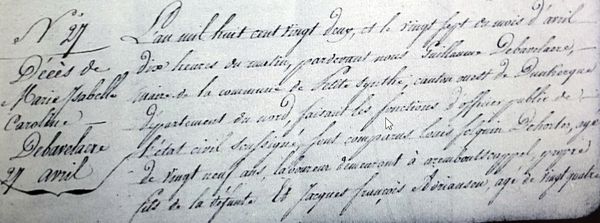 N.º 27
Décès de
Marie Isabelle
Caroline
Debavelaere
27 avril
L'an mil huit cent vingt deux, et le vingt sept ce mois d'avril
dix heures du matin, pardevant nous Guillaume Debavelaere,
maire de la commune de Petite Synthe, canton ouest de Dunkerque
département du nord, faisant les fonctions d'officier public de
l'état civil soussigné, sont comparus Louis Dehorter, agé
de vingt neuf ans, laboureur demeurant à armbouttscappel, propre
fils de la défunte Et Jacques françois Adriansen, age de vingt quatre